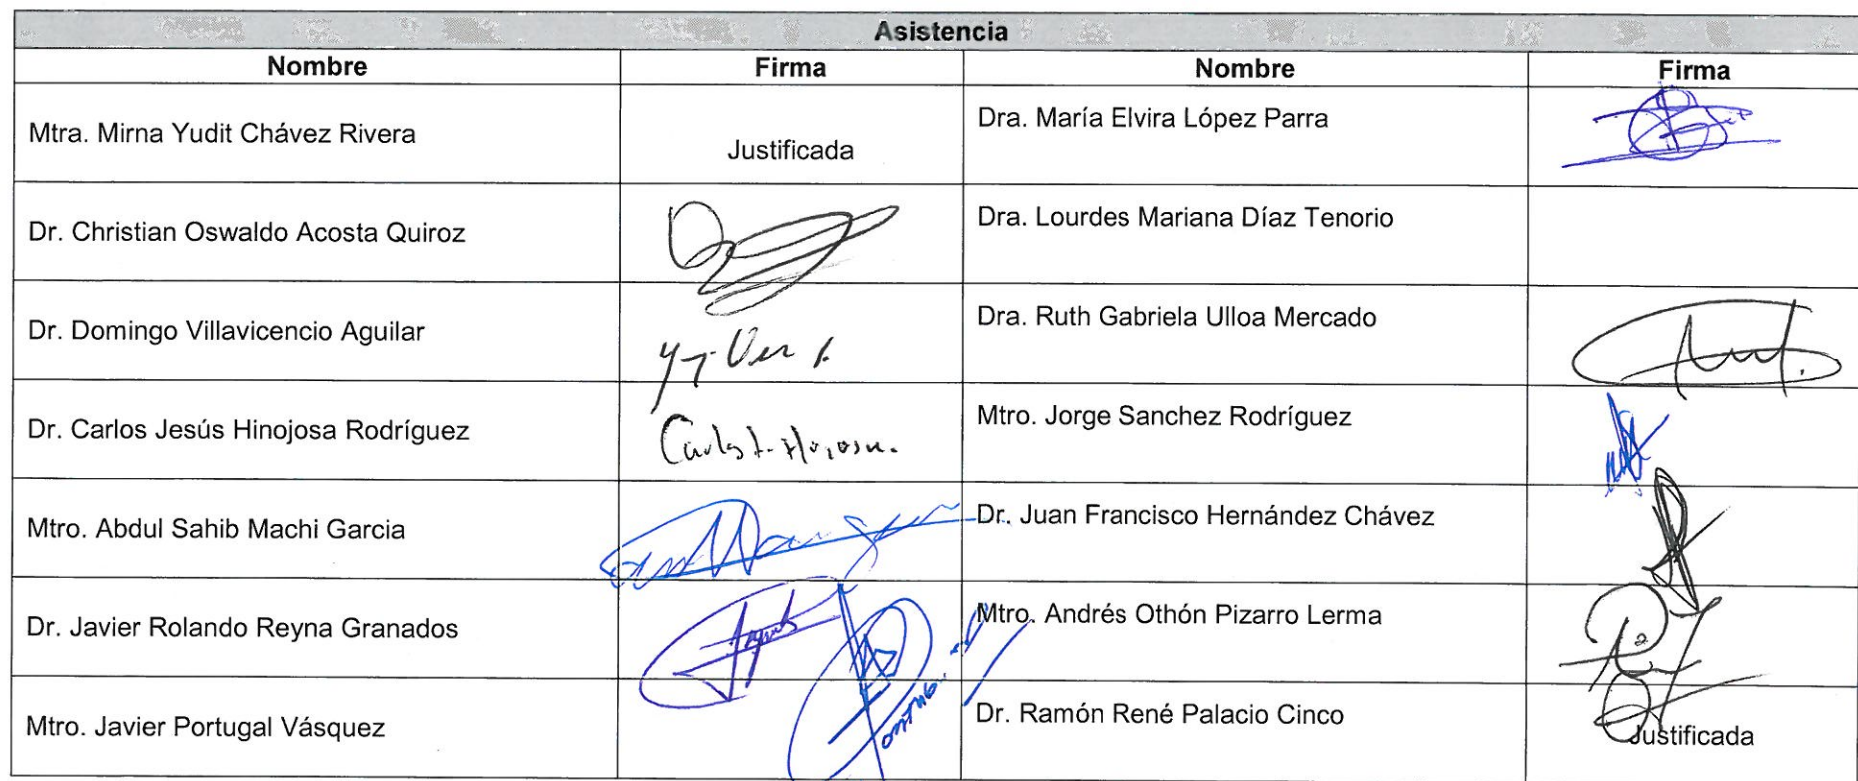 Asistencia
Nombre Firma Nombre Firma
Mtra. Mirna Yudit Chávez Rivera Justificada Dra. María Elvira López Parra
Dr. Christian Oswaldo Acosta Quiroz Dra. Lourdes Mariana Díaz Tenorio
Dr. Domingo Villavicencio Aguilar Dra. Ruth Gabriela Ulloa Mercado
Dr. Carlos Jesús Hinojosa Rodríguez Mtro. Jorge Sanchez Rodríguez
Mtro. Abdul Sahib Machi Garcia Dr. Juan Francisco Hernández Chávez
Dr. Javier Rolando Reyna Granados Mtro. Andrés Othón Pizarro Lerma
Mtro. Javier Portugal Vásquez Dr. Ramón René Palacio Cinco Justificada